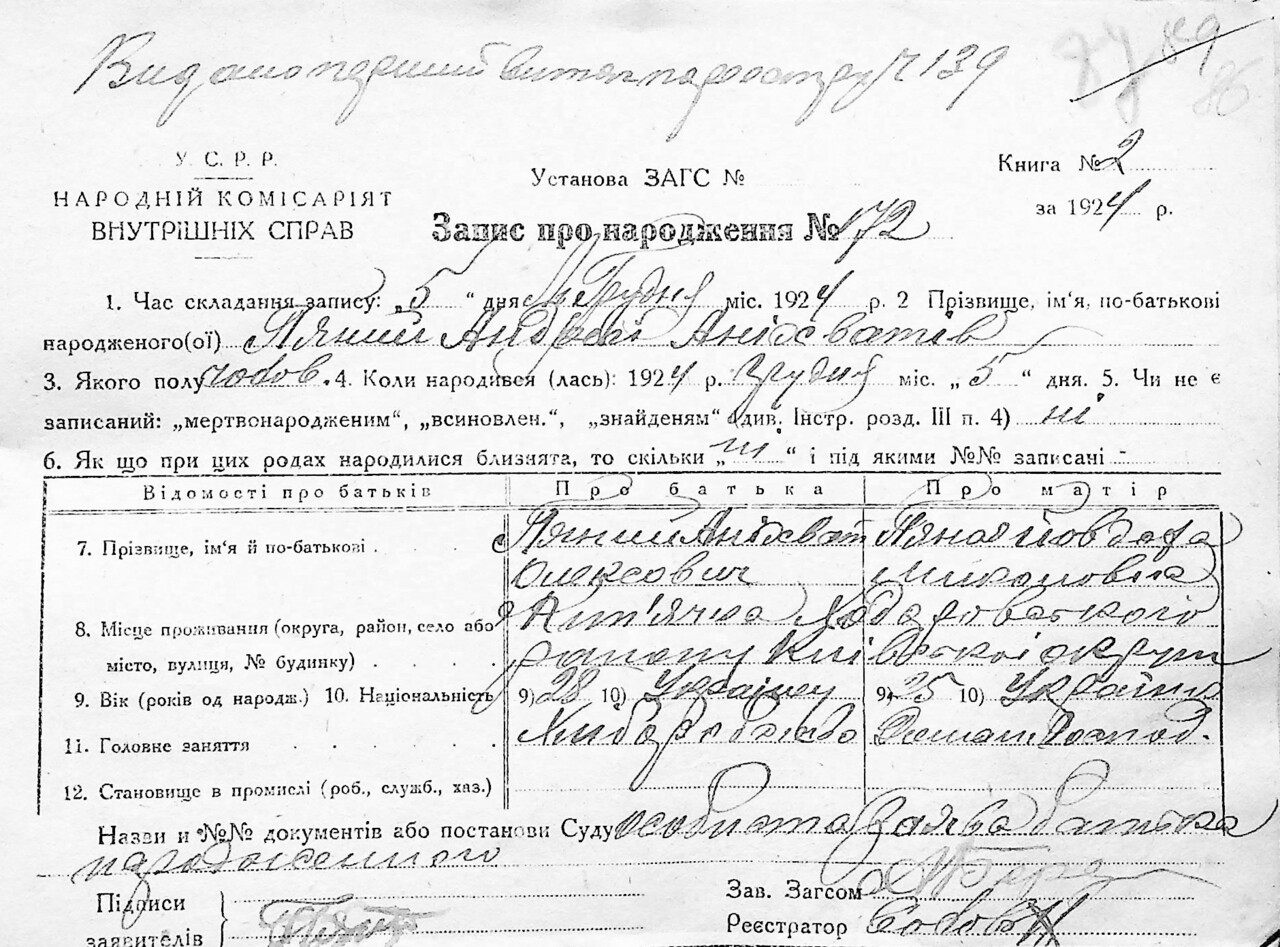 Видано перший витяг по реєстру Ч 139
89
86
У. С. Р. Р.
НАРОДНІЙ КОМІСАРІЯТ
ВНУТРІШНІХ СПРАВ
Установа ЗАГС №
Книга № 2
за 1924 р.
Запис про народження № 172
1. Час складання запису: „5“ дня Грудня міс. 1924 р. 2 Прізвище, ім'я, по-батькові
народженого(ої) Пяний Андрій Аніхватів
3. Якого полу чолов. 4. Коли народився (лась): 1924 р. Грудня міс. „5“ дня. 5. Чи не є
записаний: „мертвонародженим“, „всиновлен.“, „знайденям“ (див. Інстр. розд. III п. 4) ні
6. Як що при цих родах народилися близнята, то скільки „ні“ і під якими №№ записані -
Відомості про батьків Про батька Про матір
7. Прізвище, ім'я й по-батькові Пяний Аніхват Пяная Йовдоха
Олексович Миколовна
8. Місце проживання (округа, район, село або Кип'ячка Ходоровського
місто, вулиця, № будинку) району Київської округи
9. Вік (років од народж.) 10. Національність 9) 28 10) Українец 9) 25 10) Українка
11. Головне заняття Хлиборобство Domaш. Господ.
12. Становище в промислі (роб., служб., хаз.)
Назви и №№ документів або постанови Суду особиста заява батька
народженного
Підписи
заявителів
Зав. Загсом
Реєстратор